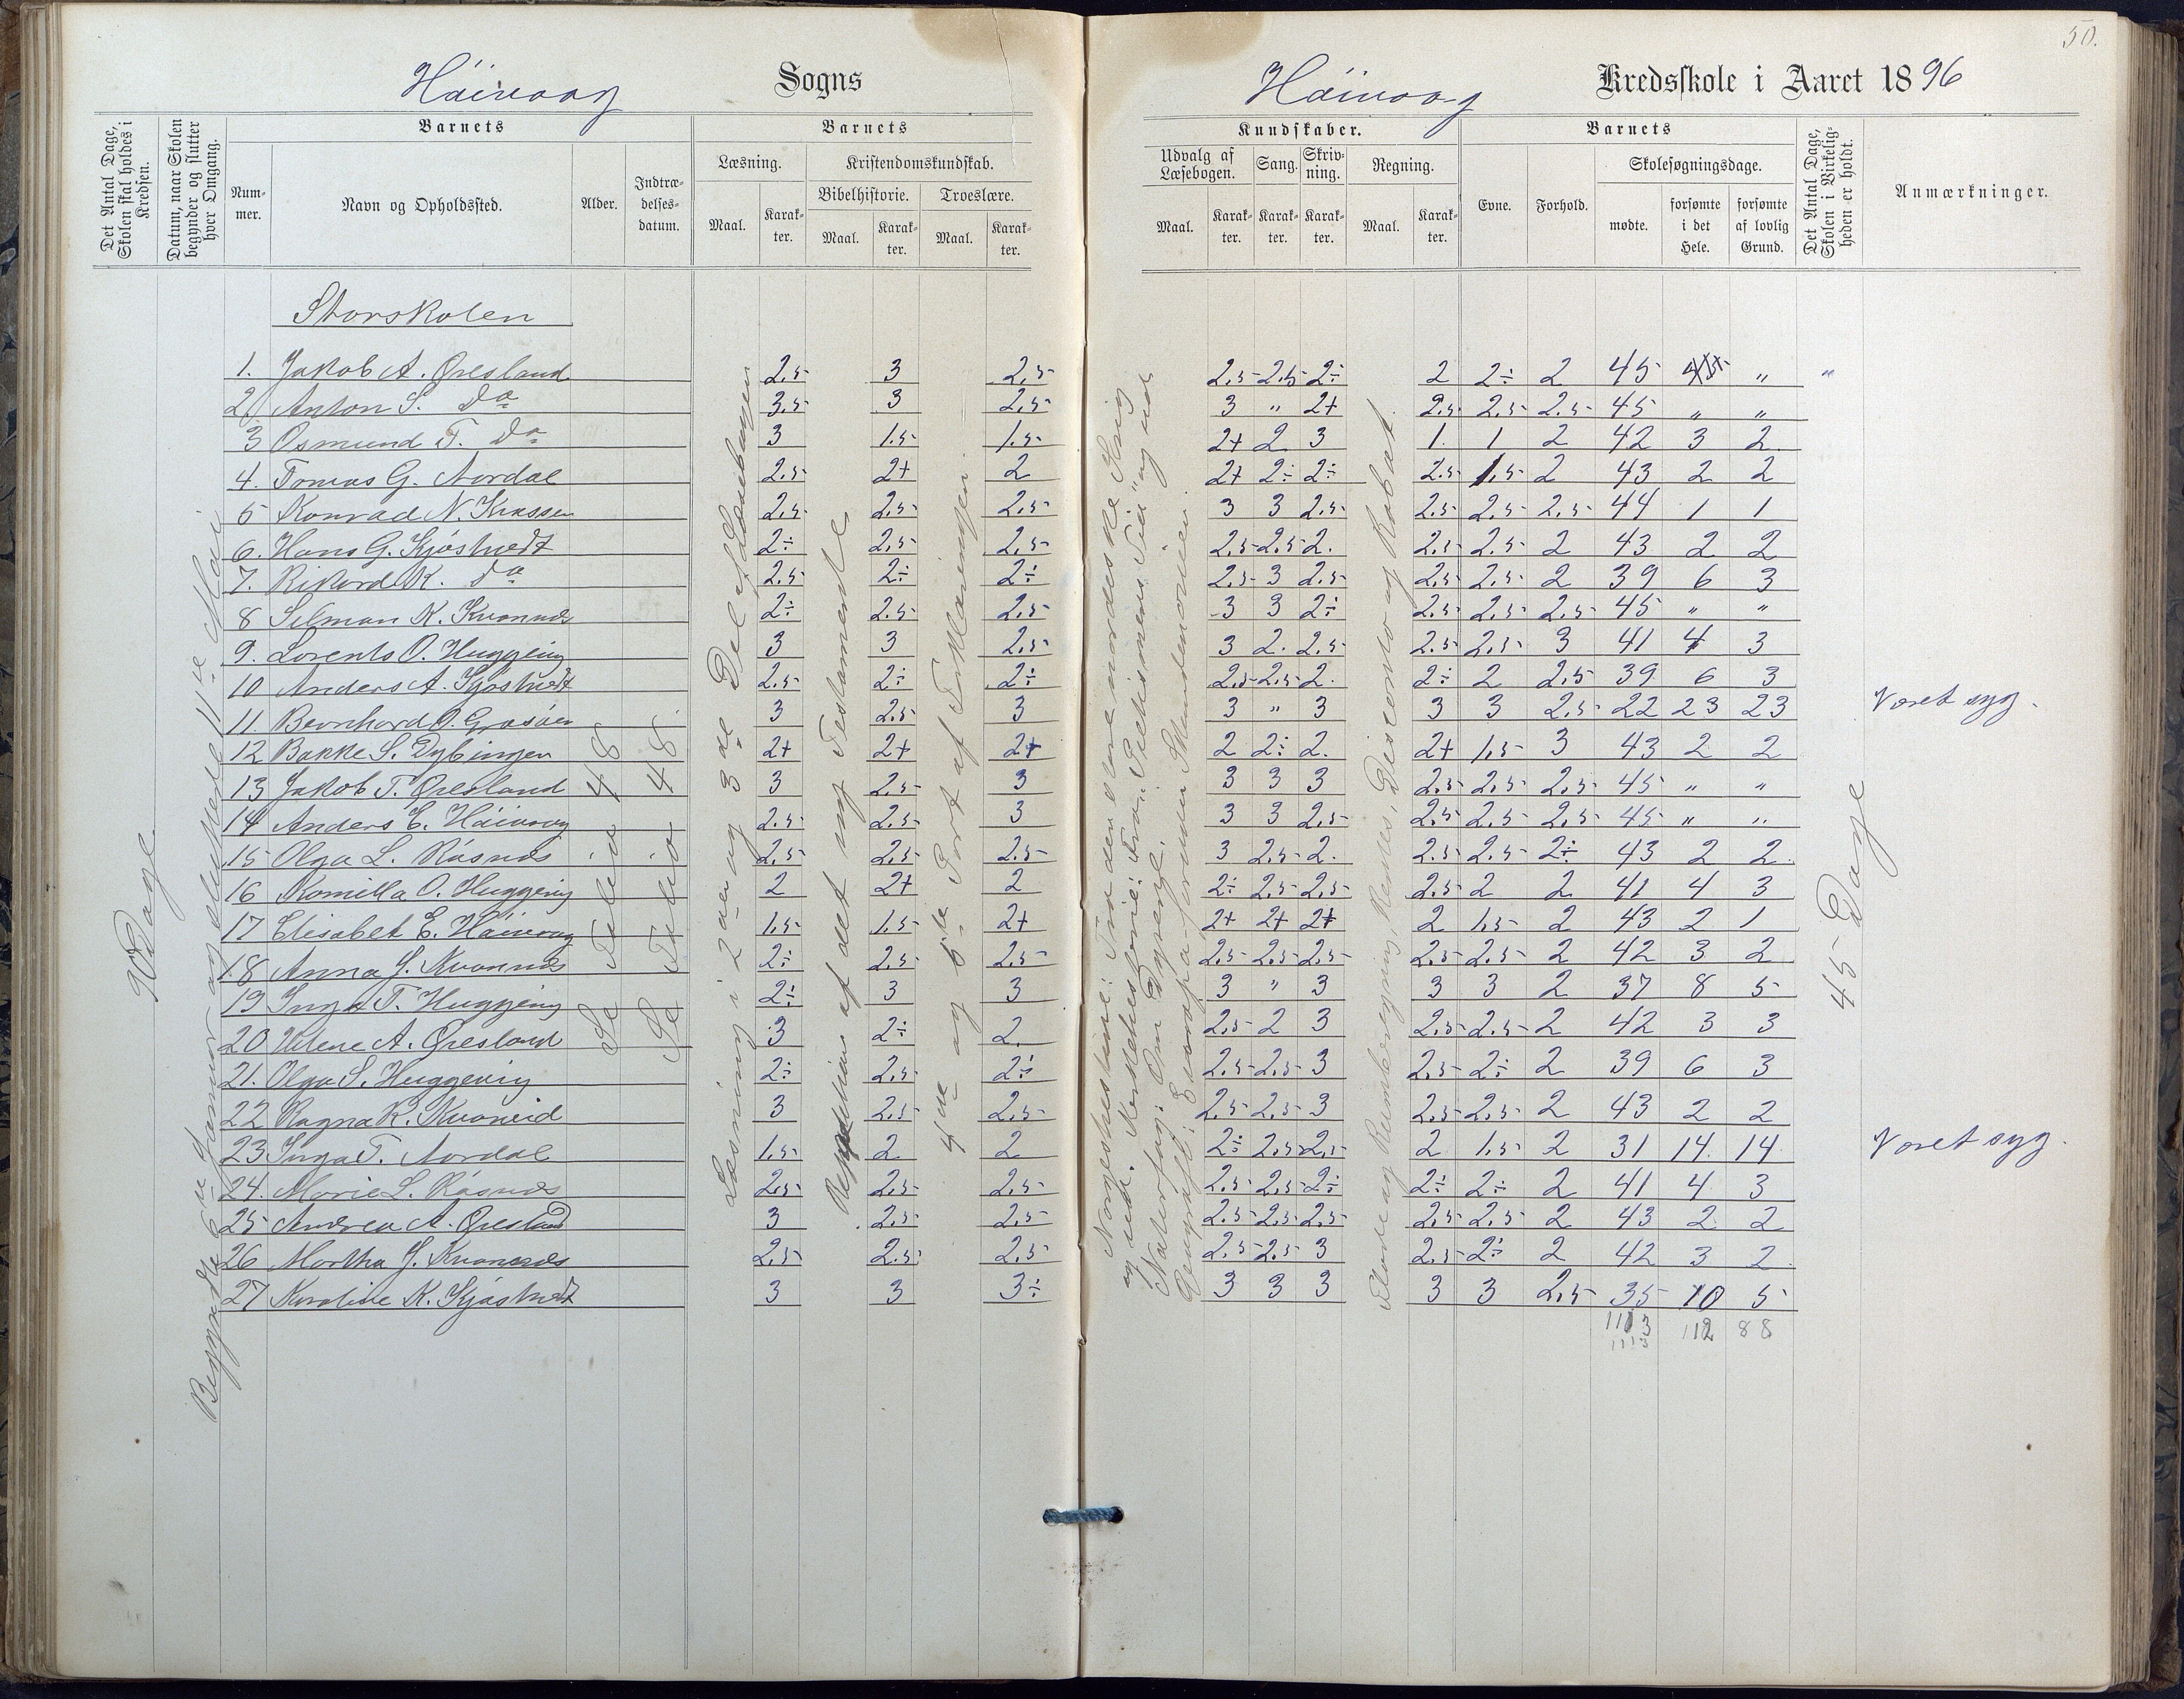 50.
Höivaag Sogns
Höivaag Kredsskole i Aaret 1896
Det Antal Dage, Skolen skal holdes i Kredsen.
Datum, naar Skolen begynder og slutter hver Omgang.
Barnets
Num-mer.
Navn og Opholdssted.
Alder.
Indtræ-delses-datum.
Barnets
Læsning.
Maal.
Karak-ter.
Kristendomskundskab.
Bibelhistorie.
Maal.
Karak-ter.
Troeslære.
Maal.
Karak-ter.
Kundskaber.
Udvalg af Læsebogen.
Maal.
Karak-ter.
Sang.
Karak-ter.
Skriv-ning.
Karak-ter.
Regning.
Maal.
Karak-ter.
Barnets
Evne.
Forhold.
Skolesøgningsdage.
mødte.
forsømte i det Hele.
forsømte af lovlig Grund.
Det Antal Dage, Skolen i Virkelig-heden er holdt.
Anmærkninger.
Storskolen
90 Dage
Begyndte 6te Januar og sluttede 11te Mai
Se Tabel 48
Se Tabel 48
Læsning i 2den og 3de Del af Læsebogen
Repetition af det nye Testamente
4de og 5te Part af Forklaringen.
45 Dage
1. Jakob A. Øresland 2,5 3 2,5 2,5 2,5 2÷ 2 2÷ 2 45 " "
2. Anton S. Do 3,5 3 2,5 3 " 2+ 2,5 2,5 2,5 45 " "
3 Osmund T. Do 3 1,5 1,5 2+ 2 3 1. 1 2 42 3 2
4. Tomas G. Nordal 2,5 2+ 2 2+ 2÷ 2÷ 2,5 1,5 2 43 2 2
5 Konrad N. 2,5 2,5 2,5 3 3 2,5 2,5 2,5 2,5 44 1 1
6. Hans G. Kjöstvedt 2÷ 2,5 2,5 2,5 2,5 2. 2,5 2,5 2 43 2 2
7. Rikard K. Do 2,5 2÷ 2÷ 2,5 3 2,5 2,5 2,5 2 39 6 3
8 Selman K. Kvannes 2÷ 2,5 2,5 3 3 2÷ 2,5 2,5 2,5 45 " "
9. Lorents O. Huggeing 3 3 2,5 3 2. 2,5 2,5 2,5 3 41 4 3
10 Anders A. Kjöstvedt 2,5 2÷ 2÷ 2,5 2,5 2. 2÷ 2 2,5 39 6 3
11. Bernhard O. Gåsöen 3 2,5 3 3 " 3 3 3 2,5 22 23 23 Været syg.
12 Bakke S. Dybingen 2+ 2+ 2+ 2 2÷ 2. 2+ 1,5 3 43 2 2
13 Jakob T. Øresland 3 2,5 3 3 3 3 2,5 2,5 2,5 45 " "
14 Anders E. Höivaag 2,5 2,5 3 3 3 2,5 2,5 2,5 2,5 45 " "
15 Olga L. Råsnæs 2,5 2,5 2,5 3 2,5 2. 2,5 2,5 2÷ 43 2 2
16 Komilla O. Huggeing 2 2+ 2 2÷ 2,5 2,5 2,5 2 2 41 4 3
17 Elisabet E. Höivaag 1,5 1,5 2+ 2+ 2+ 2+ 2 1,5 2 43 2 1
18 Anna J. Kvannæs 2÷ 2,5 2,5 2,5 2,5 2,5 2,5 2,5 2 42 3 2
19 Inga T. Huggeing 2÷ 3 3 3 " 3 3 3 2 37 8 5
20 Helene A. Øresland 3 2÷ 2. 2,5 2 3 2,5 2,5 2 42 3 3
21. Olga S. Huggeing 2÷ 2,5 2÷ 2,5 2,5 3 2,5 2÷ 2 39 6 3
22 Ragna K. Kvaneid 3 2,5 2,5 2,5 2,5 3 2,5 2,5 2 43 2 2
23 Inga T. Nordal 1,5 2 2 2÷ 2,5 2,5 2 1,5 2 31 14 14 Været syg.
24. Marie L. Råsnæs 2,5 2,5 2,5 2,5 2,5 2÷ 2÷ 2÷ 2 41 4 3
25 Andrea A. Øresland 3 2,5 2,5 2,5 2,5 2,5 2,5 2,5 2 43 2 2
26 Martha J. Kvannæs 2,5 2,5 2,5 2,5 2,5 3 2,5 2÷ 2 42 3 2
27 Karoline K. Kjöstvedt 3 3 3÷ 3 3 3 3 3 2,5 35 10 5
1113 112 88
1113